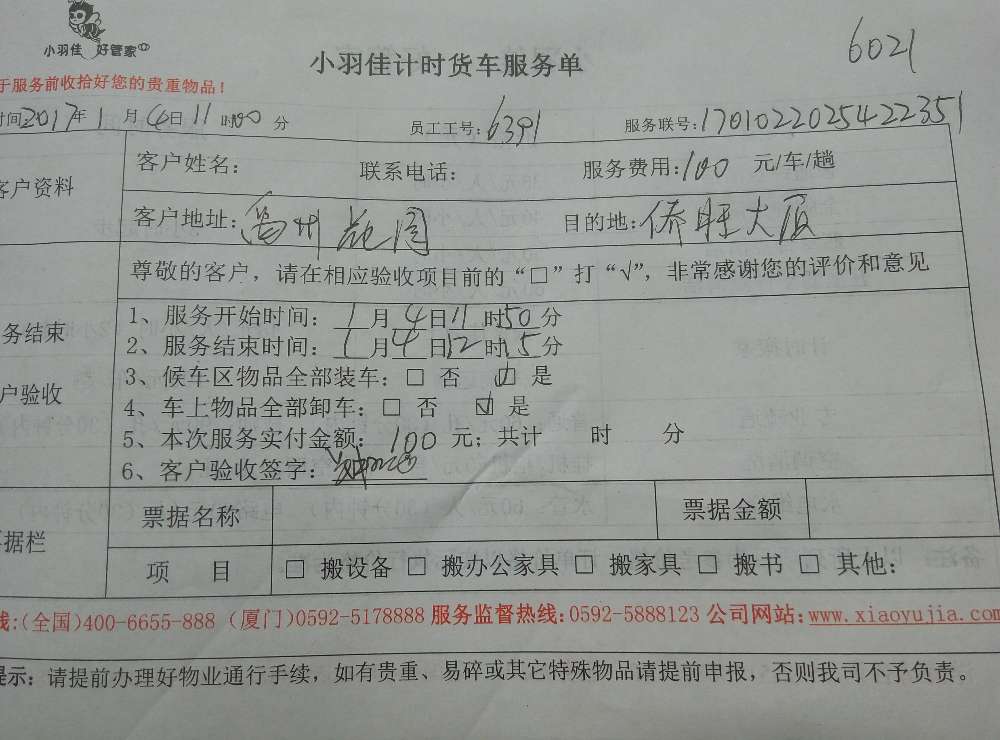 小羽佳 好管家
6021
小羽佳计时货车服务单
于服务前收拾好您的贵重物品！
时间2017年1月4日11时00分 员工工号：6391 服务联号：1701022025422351
客户资料
客户姓名： 联系电话： 服务费用：100元/车/趟
客户地址：禹州花园 目的地：侨旺大厦
尊敬的客户，请在相应验收项目前的“□”打“√”，非常感谢您的评价和意见
务结束
户验收
1、服务开始时间：1月4日11时50分
2、服务结束时间：1月4日12时15分
3、候车区物品全部装车：□ 否 ☑ 是
4、车上物品全部卸车：□ 否 ☑ 是
5、本次服务实付金额：100元；共计 时 分
6、客户验收签字：
据栏
票据名称 票据金额
项 目 □ 搬设备 □ 搬办公家具 □ 搬家具 □ 搬书 □ 其他：
线:(全国)400-6655-888（厦门)0592-5178888 服务监督热线:0592-5888123 公司网站:www.xiaoyujia.com
提示：请提前办理好物业通行手续，如有贵重、易碎或其它特殊物品请提前申报，否则我司不予负责。